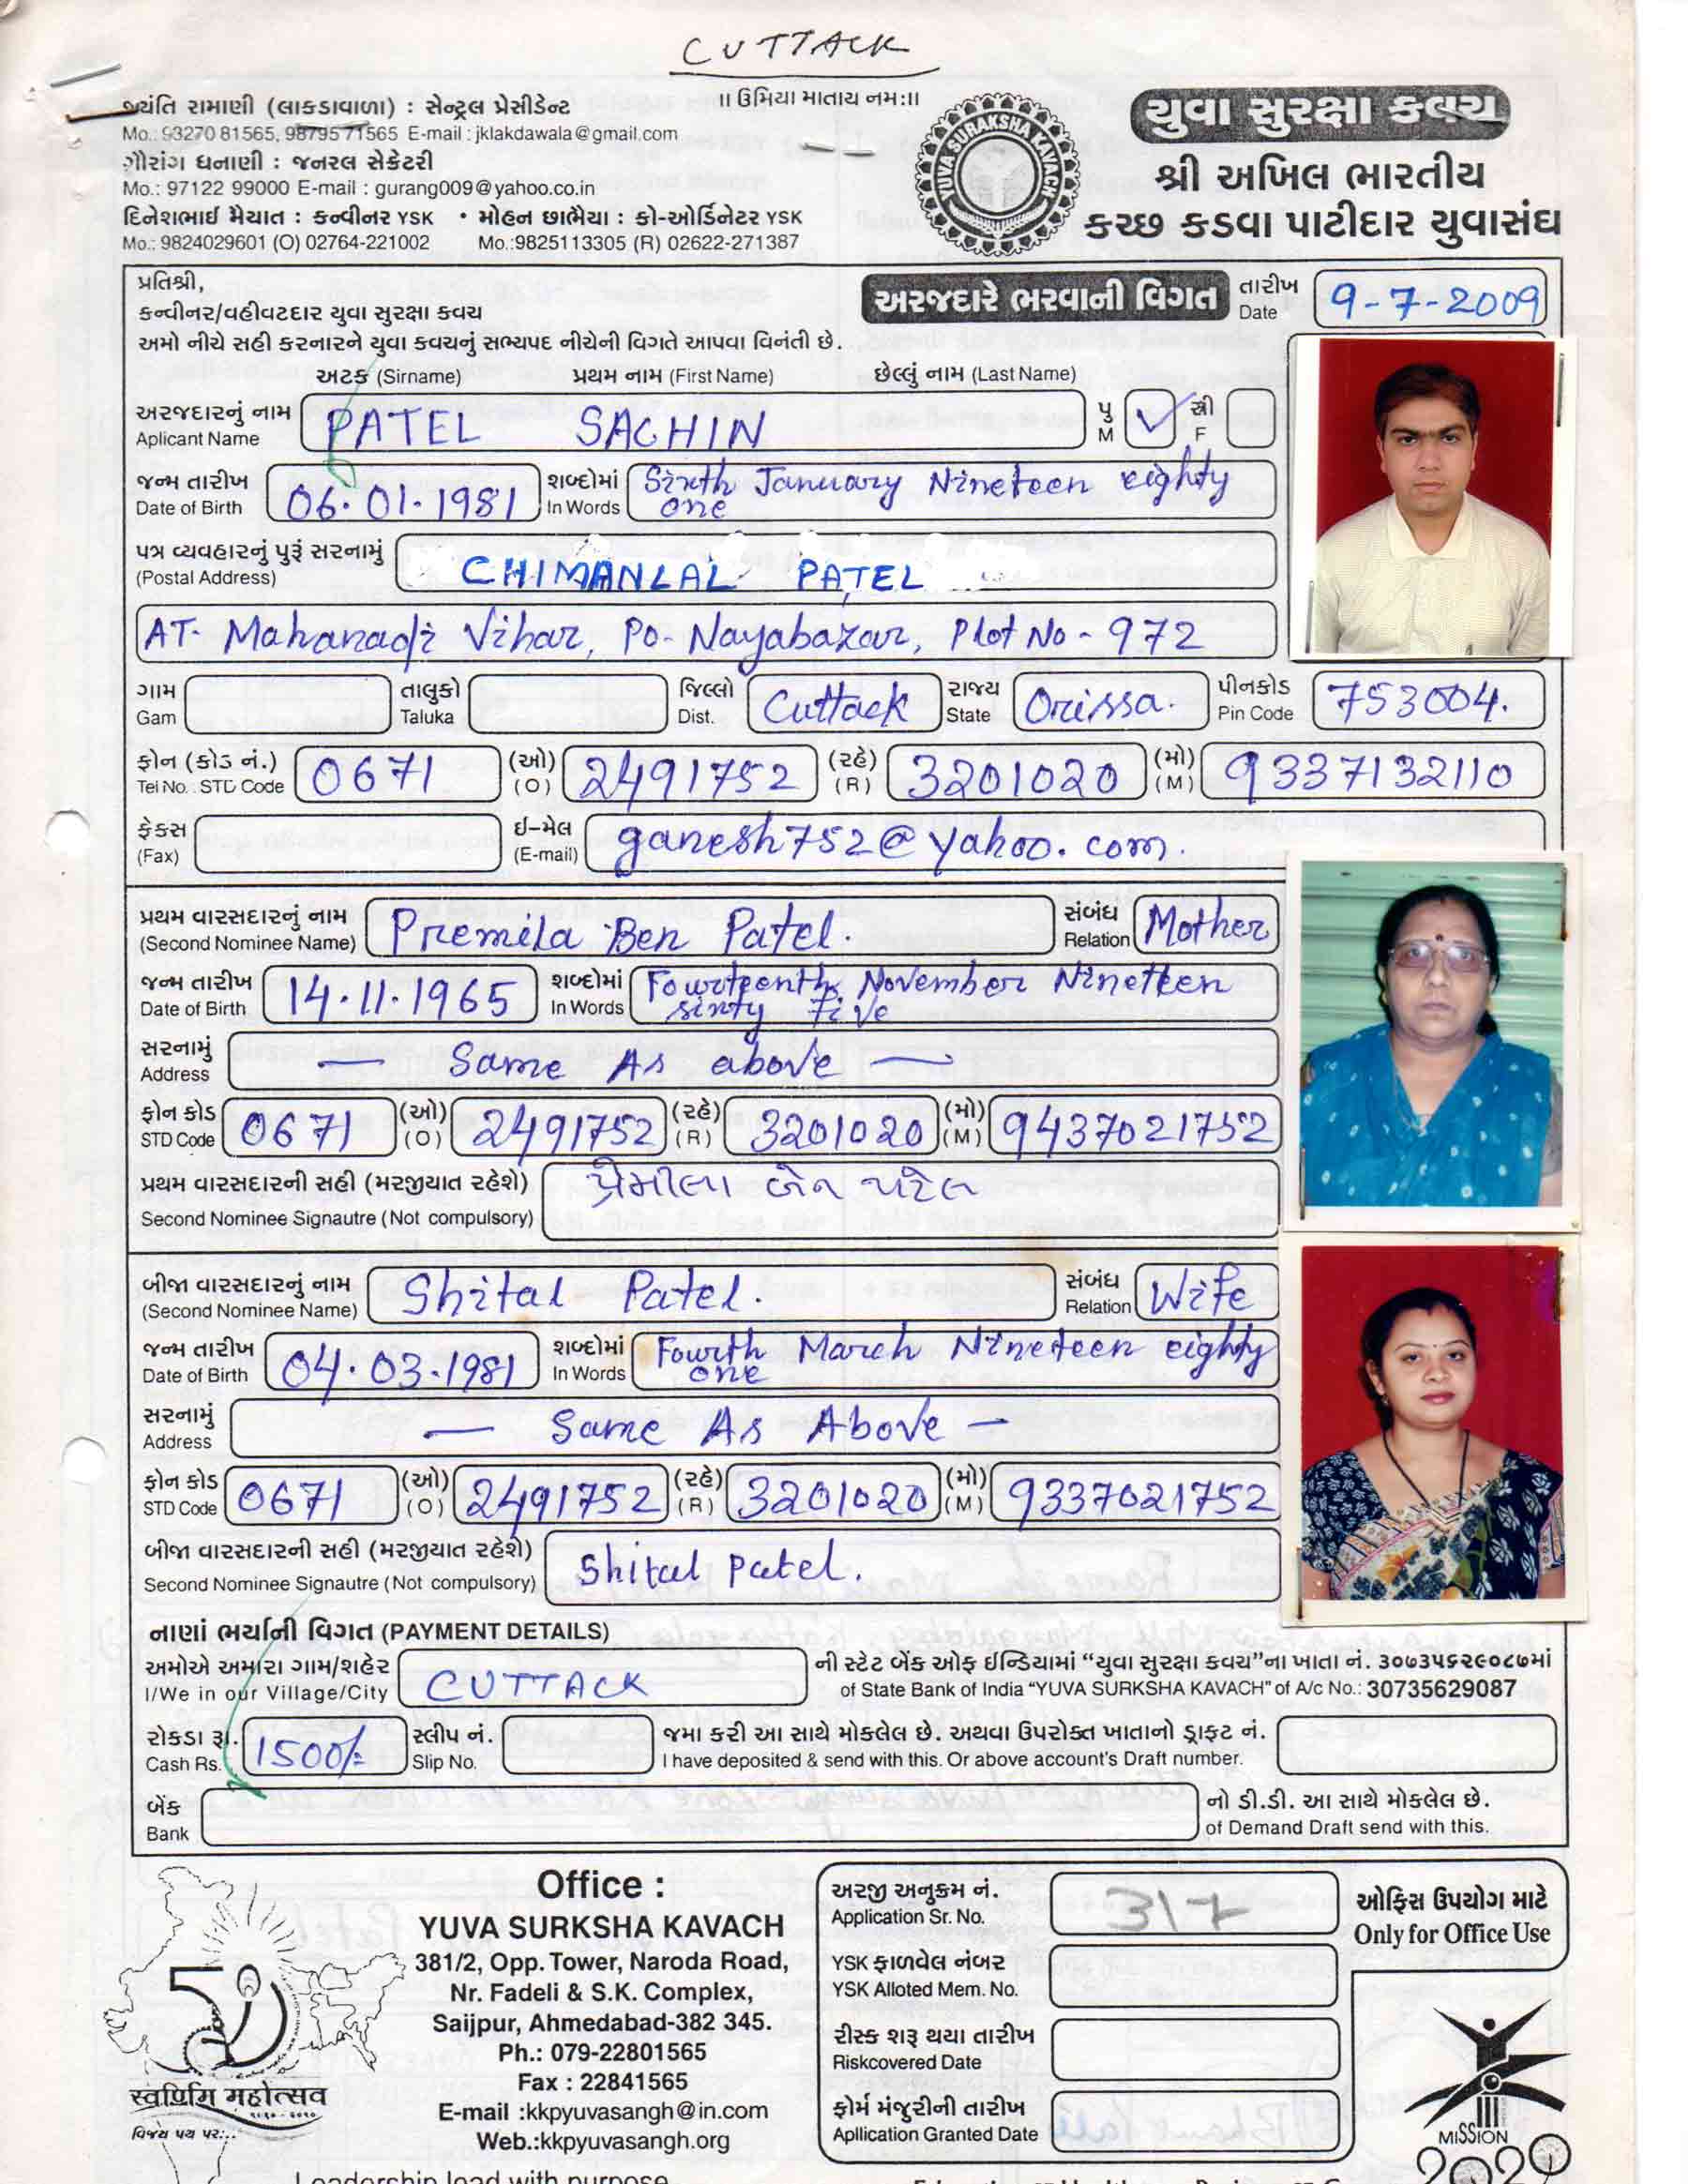 CUTTACK
જયંતિ રામાણી (લાકડાવાળા) : સેન્ટ્રલ પ્રેસીડેન્ટ
Mo.: 93270 81565, 98795 71565 E-mail : jklakdawala@gmail.com
ગૌરાંગ ધનાણી : જનરલ સેક્રેટરી
Mo.: 97122 99000 E-mail : gurang009@yahoo.co.in
દિનેશભાઈ મૈયાત : કન્વીનર YSK • મોહન છાભૈયા : કો-ઓર્ડિનેટર YSK
Mo.: 9824029601 (O) 02764-221002 Mo.:9825113305 (R) 02622-271387
॥ ઉમિયા માતાય નમ:॥
YUVA SURAKSHA KAVACH
યુવા સુરક્ષા કવચ
શ્રી અખિલ ભારતીય
કચ્છ કડવા પાટીદાર યુવાસંઘ
પ્રતિશ્રી,
કન્વીનર/વહીવટદાર યુવા સુરક્ષા કવચ
અમો નીચે સહી કરનારને યુવા કવચનું સભ્યપદ નીચેની વિગતે આપવા વિનંતી છે.
અરજદારે ભરવાની વિગત
તારીખ Date 9-7-2009
અટક (Sirname) પ્રથમ નામ (First Name) છેલ્લું નામ (Last Name)
અરજદારનું નામ Aplicant Name PATEL SACHIN પુ M ✓ સ્ત્રી F
જન્મ તારીખ Date of Birth 06.01.1981 શબ્દોમાં In Words Sixth January Nineteen eighty one
પત્ર વ્યવહારનું પુરૂં સરનામું (Postal Address) CHIMANLAL PATEL
AT- Mahanadi Vihar, Po- Nayabazar, Plot No - 972
ગામ Gam તાલુકો Taluka જિલ્લો Dist. Cuttack રાજ્ય State Orissa. પીનકોડ Pin Code 753004.
ફોન (કોડ નં.) Tel No. STD Code 0671 (ઓ) (O) 2491752 (રહે) (R) 3201020 (મો) (M) 9337132110
ફેક્સ (Fax) ઈ-મેલ (E-mail) ganesh752@yahoo.com.
પ્રથમ વારસદારનું નામ (Second Nominee Name) Premila Ben Patel. સંબંધ Relation Mother
જન્મ તારીખ Date of Birth 14.11.1965 શબ્દોમાં In Words Fourteenth November Nineteen sixty five
સરનામું Address — Same As above —
ફોન કોડ STD Code 0671 (ઓ) (O) 2491752 (રહે) (R) 3201020 (મો) (M) 9437021752
પ્રથમ વારસદારની સહી (મરજીયાત રહેશે) પ્રેમીલા બેન પટેલ
Second Nominee Signautre (Not compulsory)
બીજા વારસદારનું નામ (Second Nominee Name) Shital Patel. સંબંધ Relation Wife
જન્મ તારીખ Date of Birth 04.03.1981 શબ્દોમાં In Words Fourth March Nineteen eighty one
સરનામું Address — Same As Above —
ફોન કોડ STD Code 0671 (ઓ) (O) 2491752 (રહે) (R) 3201020 (મો) (M) 9337021752
બીજા વારસદારની સહી (મરજીયાત રહેશે) Shital Patel.
Second Nominee Signautre (Not compulsory)
નાણાં ભર્યાની વિગત (PAYMENT DETAILS)
અમોએ અમારા ગામ/શહેર CUTTACK ની સ્ટેટ બેંક ઓફ ઈન્ડિયામાં “યુવા સુરક્ષા કવચ”ના ખાતા નં. ૩૦૭૩૫૬૨૯૦૮૭માં
I/We in our Village/City of State Bank of India “YUVA SURKSHA KAVACH” of A/c No.: 30735629087
રોકડા રૂા. 1500/- સ્લીપ નં. જમા કરી આ સાથે મોકલેલ છે. અથવા ઉપરોક્ત ખાતાનો ડ્રાફ્ટ નં.
Cash Rs. Slip No. I have deposited & send with this. Or above account's Draft number.
બેંક નો ડી.ડી. આ સાથે મોકલેલ છે.
Bank of Demand Draft send with this.
50
સ્વર્ણિમ મહોત્સવ
વિજય પથ પર...
Office :
YUVA SURKSHA KAVACH
381/2, Opp. Tower, Naroda Road,
Nr. Fadeli & S.K. Complex,
Saijpur, Ahmedabad-382 345.
Ph.: 079-22801565
Fax : 22841565
E-mail :kkpyuvasangh@in.com
Web.:kkpyuvasangh.org
અરજી અનુક્રમ નં. Application Sr. No. 317
YSK ફાળવેલ નંબર YSK Alloted Mem. No.
રીસ્ક શરૂ થયા તારીખ Riskcovered Date
ફોર્મ મંજુરીની તારીખ Apllication Granted Date
ઓફિસ ઉપયોગ માટે
Only for Office Use
MISSION
2020
Leadership lead with purpose